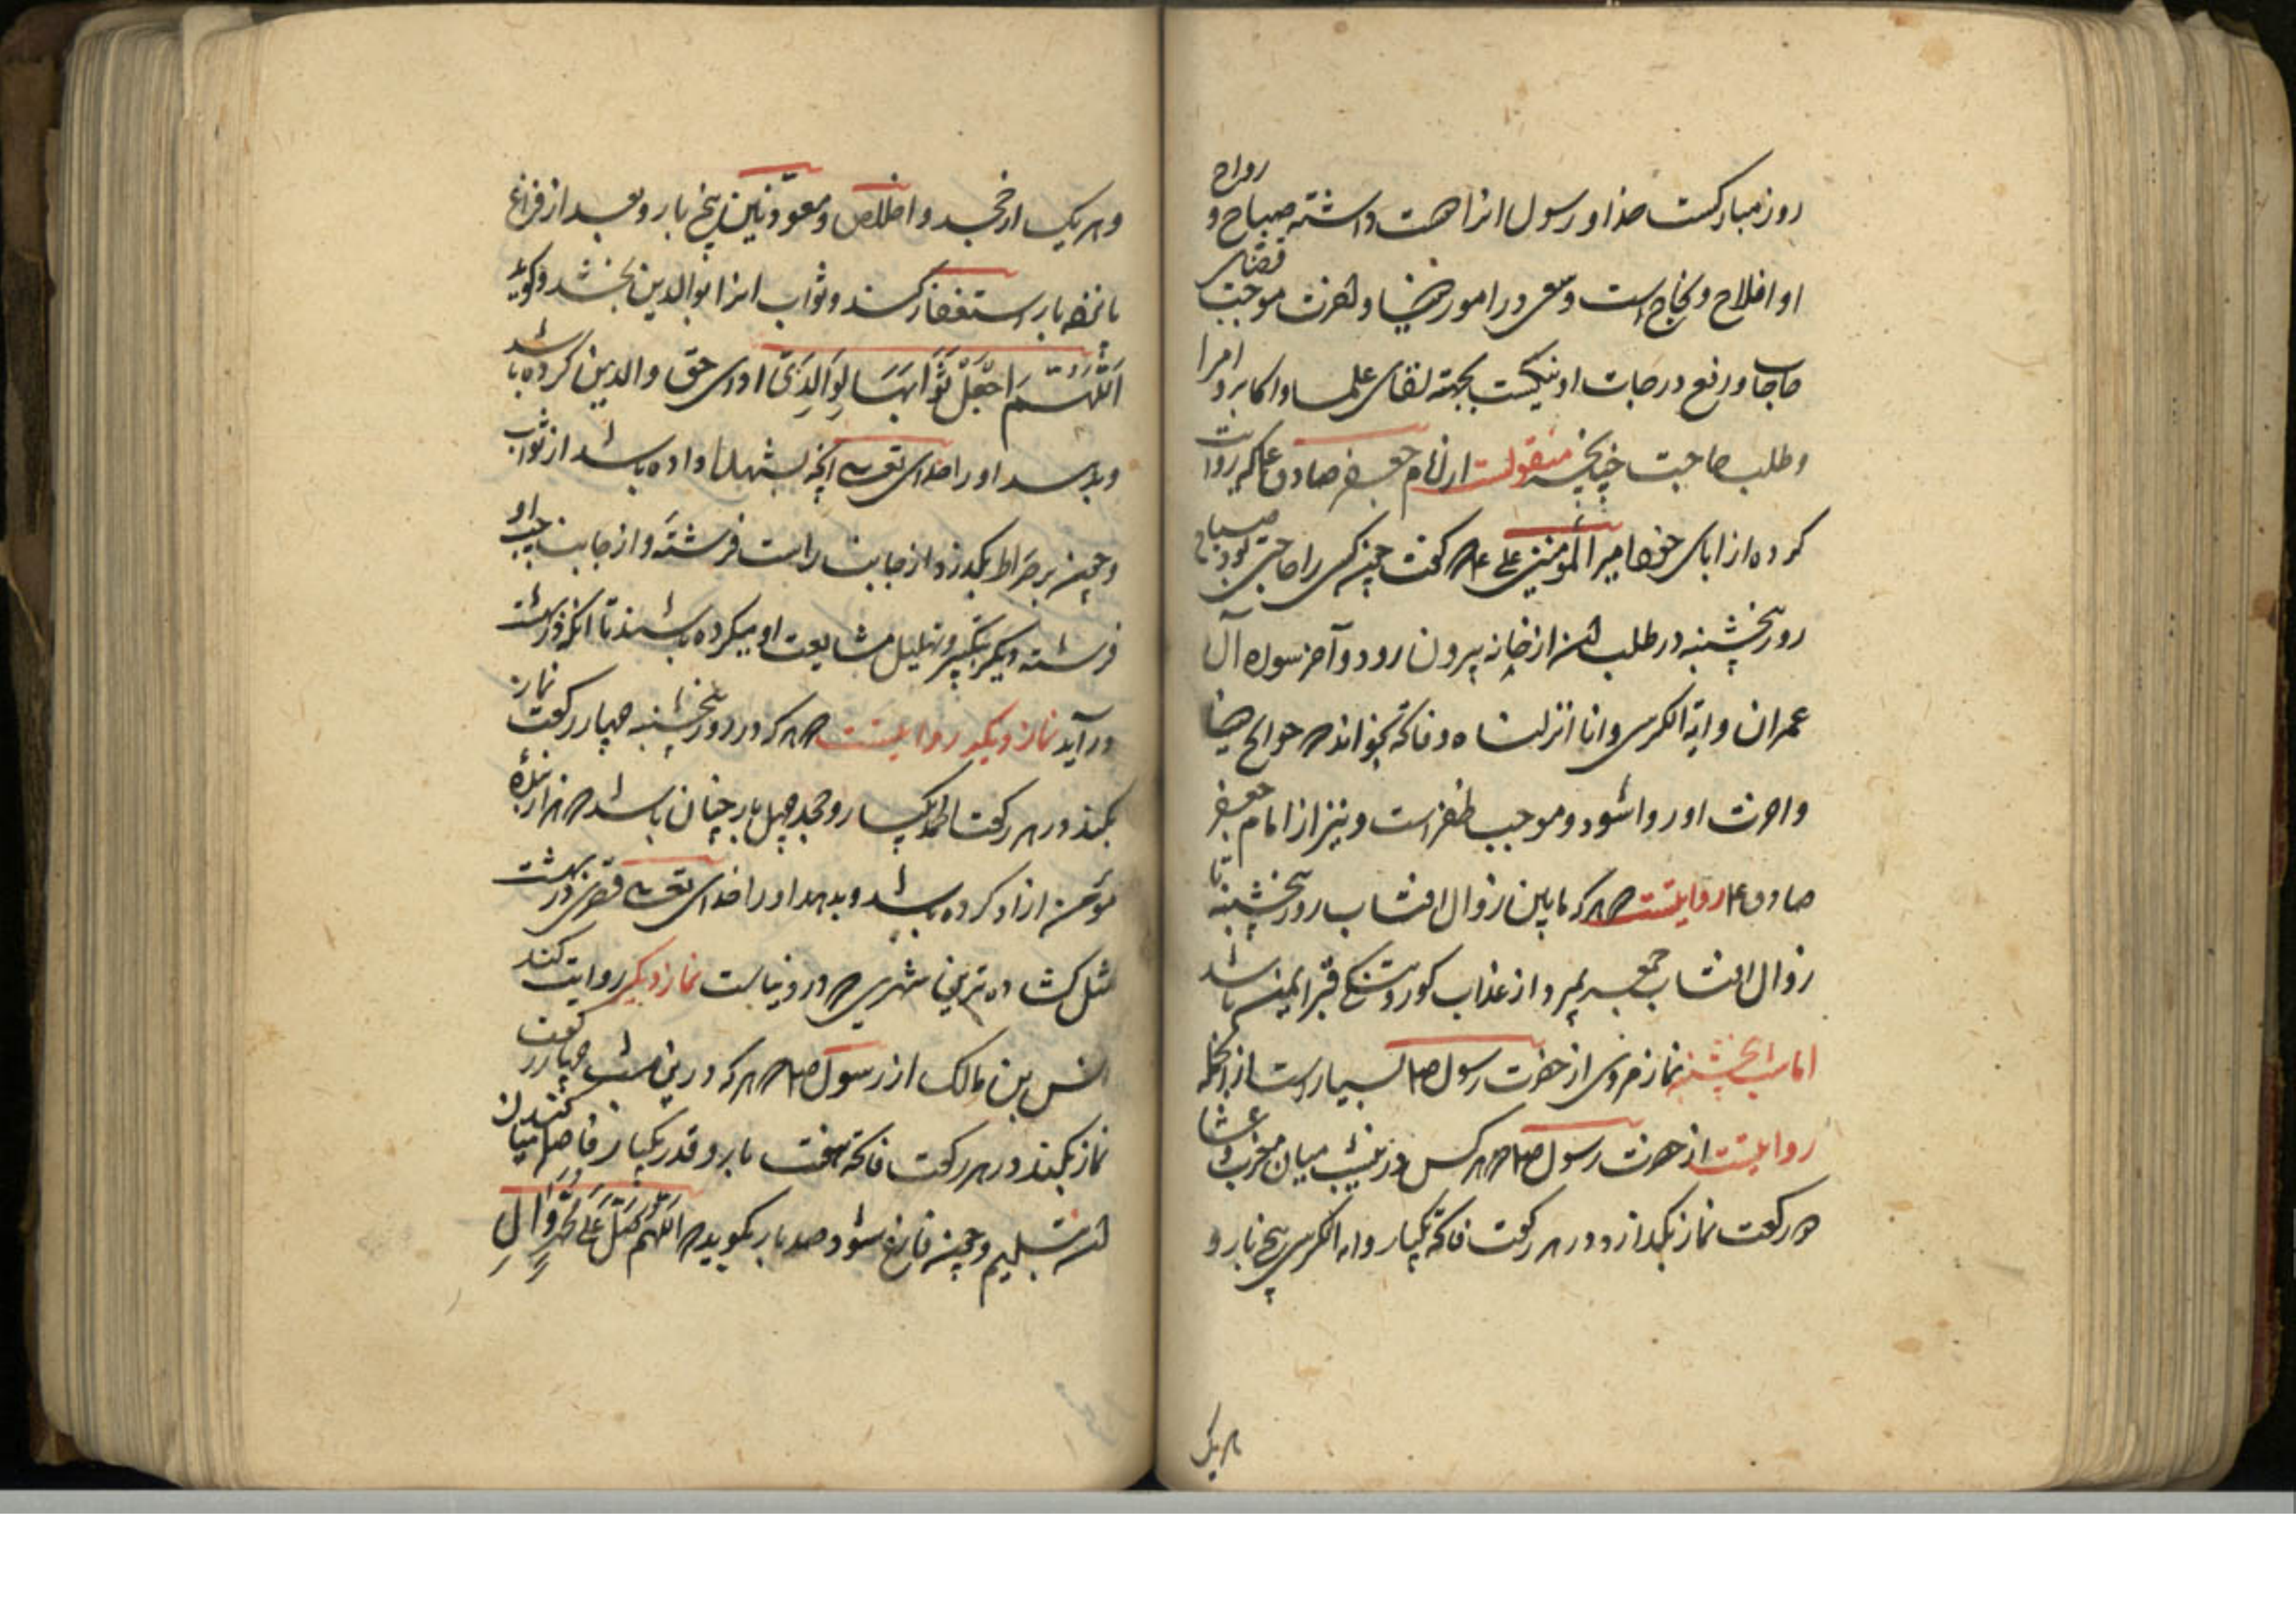 روز مبارکست خدا و رسول انرا دوست داشته صباح و رواح
او افلاح و نجاح است و سعی در امور خفیا و لغزت موجب قضای
حاجات و رفع درجات او نیکست بجهة لقای علما و اکابر و امرا
و طلب حاجت چنانچه منقولست از امام جعفر صادق ع که روایت
کرده از ابای خود امیر المؤمنین علی ع که گفت چون کسی را حاجتی بود صباح
روز پنجشنبه در طلب ان از خانه بیرون رود و آخر سوره آل
عمران و ایة الکرسی و انا انزلناه و فاتحه بخواند که حوایج دنیا
و اخرت او روا شود و موجب ظفر است و نیز از امام جعفر
صادق ع روایتست که هر که مابین زوال افتاب روز پنجشنبه تا
زوال افتاب جمعه بمیرد از عذاب کور و تنکی قبر ایمن باشد
اما شب پنجشنبه نماز مروی از حضرت رسول ص بسیار است از انجمله
روایتست از حضرت رسول ص که هر کس در این شب میان مغرب و عشا
دو رکعت نماز بگذارد و در هر رکعت فاتحه یکبار و ایة الکرسی پنج بار و
هر یک
و هر یک از جحد و اخلاص و معوذتین پنج بار و بعد از فراغ
پانزده بار استغفار کند و ثواب انرا بوالدین بخشد و کوید
اَللّٰهُمَّ اجْعَلْ ثَوَابَهَا لِوَالِدَیَّ ادای حق والدین کرده باشد
و بدهد او را خدای تعالی انچه بشهدا داده باشد از ثواب
و چون بر صراط بگذرد از جانب راست فرشته و از جانب چپ او
فرشته دیگر بتکبیر و تهلیل مشایعت او میکرده باشند تا انکه در بهشت
در آید نماز دیگر روایتست که هر که در روز پنجشنبه چهار رکعت نماز
بکند در هر رکعت الحمد یکبار و جحد چهل بار چنان باشد که هزار بنده
مؤمن ازاد کرده باشد و بدهد او را خدای تعالی قصری در بهشت
مثل کشاده ترین شهری که در دنیاست نماز دیگر روایت کند
انس بن مالک از رسول ص که هر که در این شب چهار رکعت
نماز بکند در هر رکعت فاتحه هفت بار و قدر یکبار فاصله میان کنند ان
بتسلیم و چون فارغ شود صد بار بگوید که اَللّٰهُمَّ صَلِّ عَلٰی مُحَمَّدٍ وَآلِ